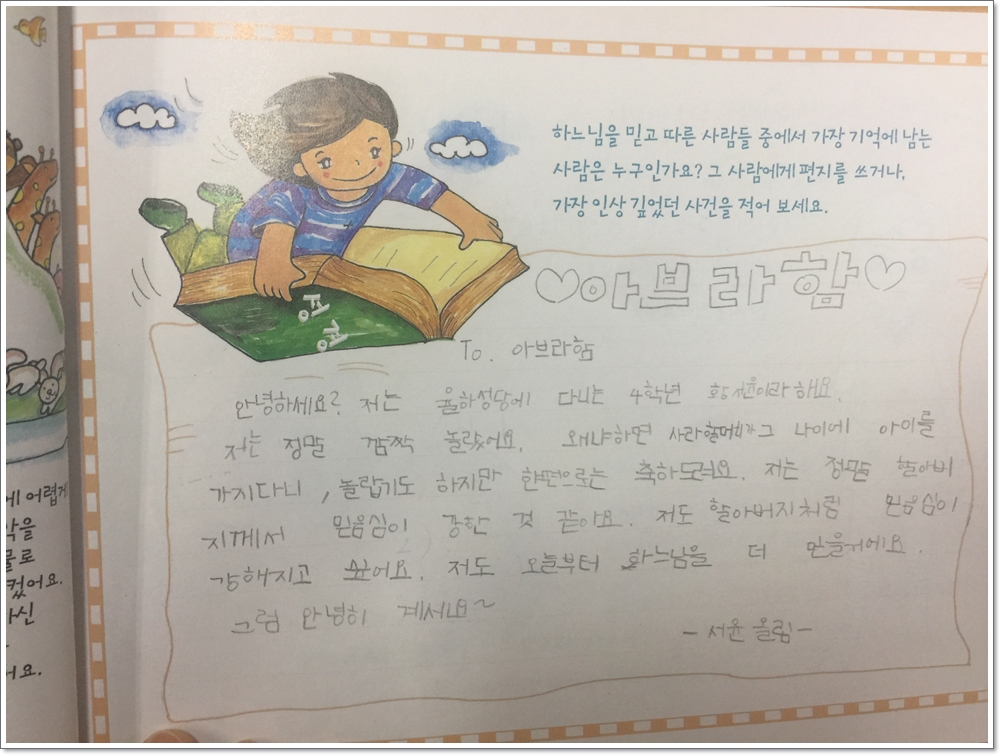 하느님을 믿고 따른 사람들 중에서 가장 기억에 남는
사람은 누구인가요? 그 사람에게 편지를 쓰거나,
가장 인상 깊었던 사건을 적어 보세요.
♡아브라함♡
성경
To. 아브라함
안녕하세요? 저는 율하성당에 다니는 4학년 황서윤이라 해요.
저는 정말 깜짝 놀랐어요. 왜냐하면 사라할머니가 그 나이에 아이를
가지다니, 놀랍기도 하지만 한편으로는 축하드려요. 저는 정말 할아버
지께서 믿음심이 강한 것 같아요. 저도 할아버지처럼 믿음심이
강해지고 싶어요. 저도 오늘부터 하느님을 더 믿을거에요.
그럼 안녕히 계세요~
-서윤 올림-
에 어렵게
악을
물로
컸어요.
하신
어요.